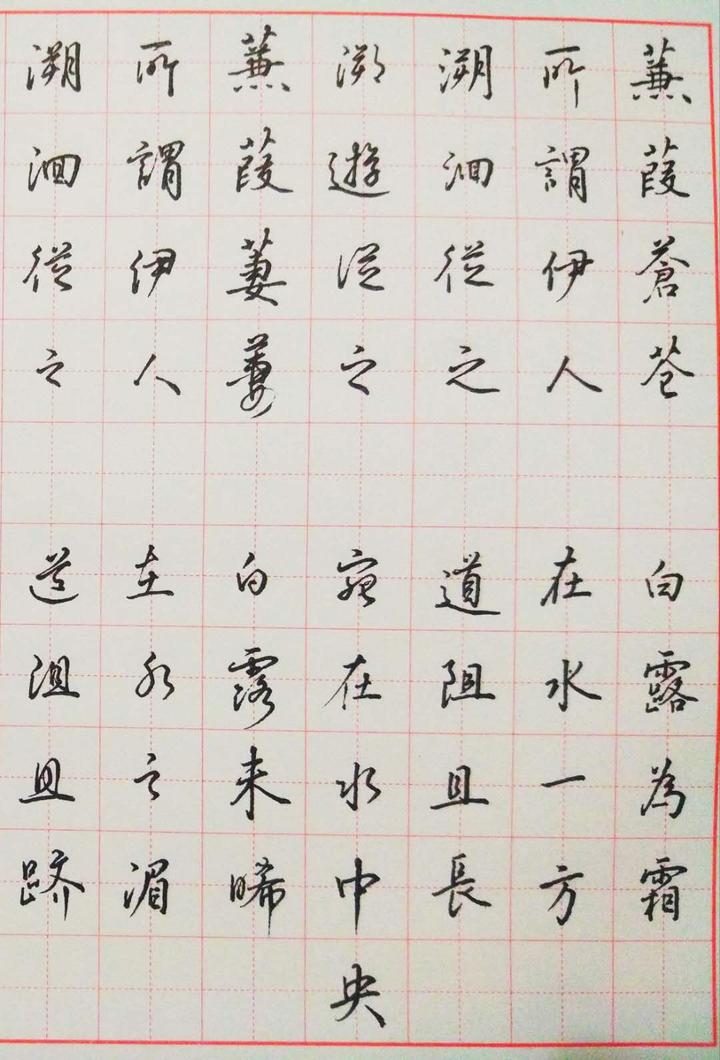 蒹葭蒼苍 白露為霜
所謂伊人 在水一方
溯洄從之 道阻且長
溯遊從之 宛在水中央
蒹葭萋萋 白露未晞
所謂伊人 在水之湄
溯洄從之 道阻且跻